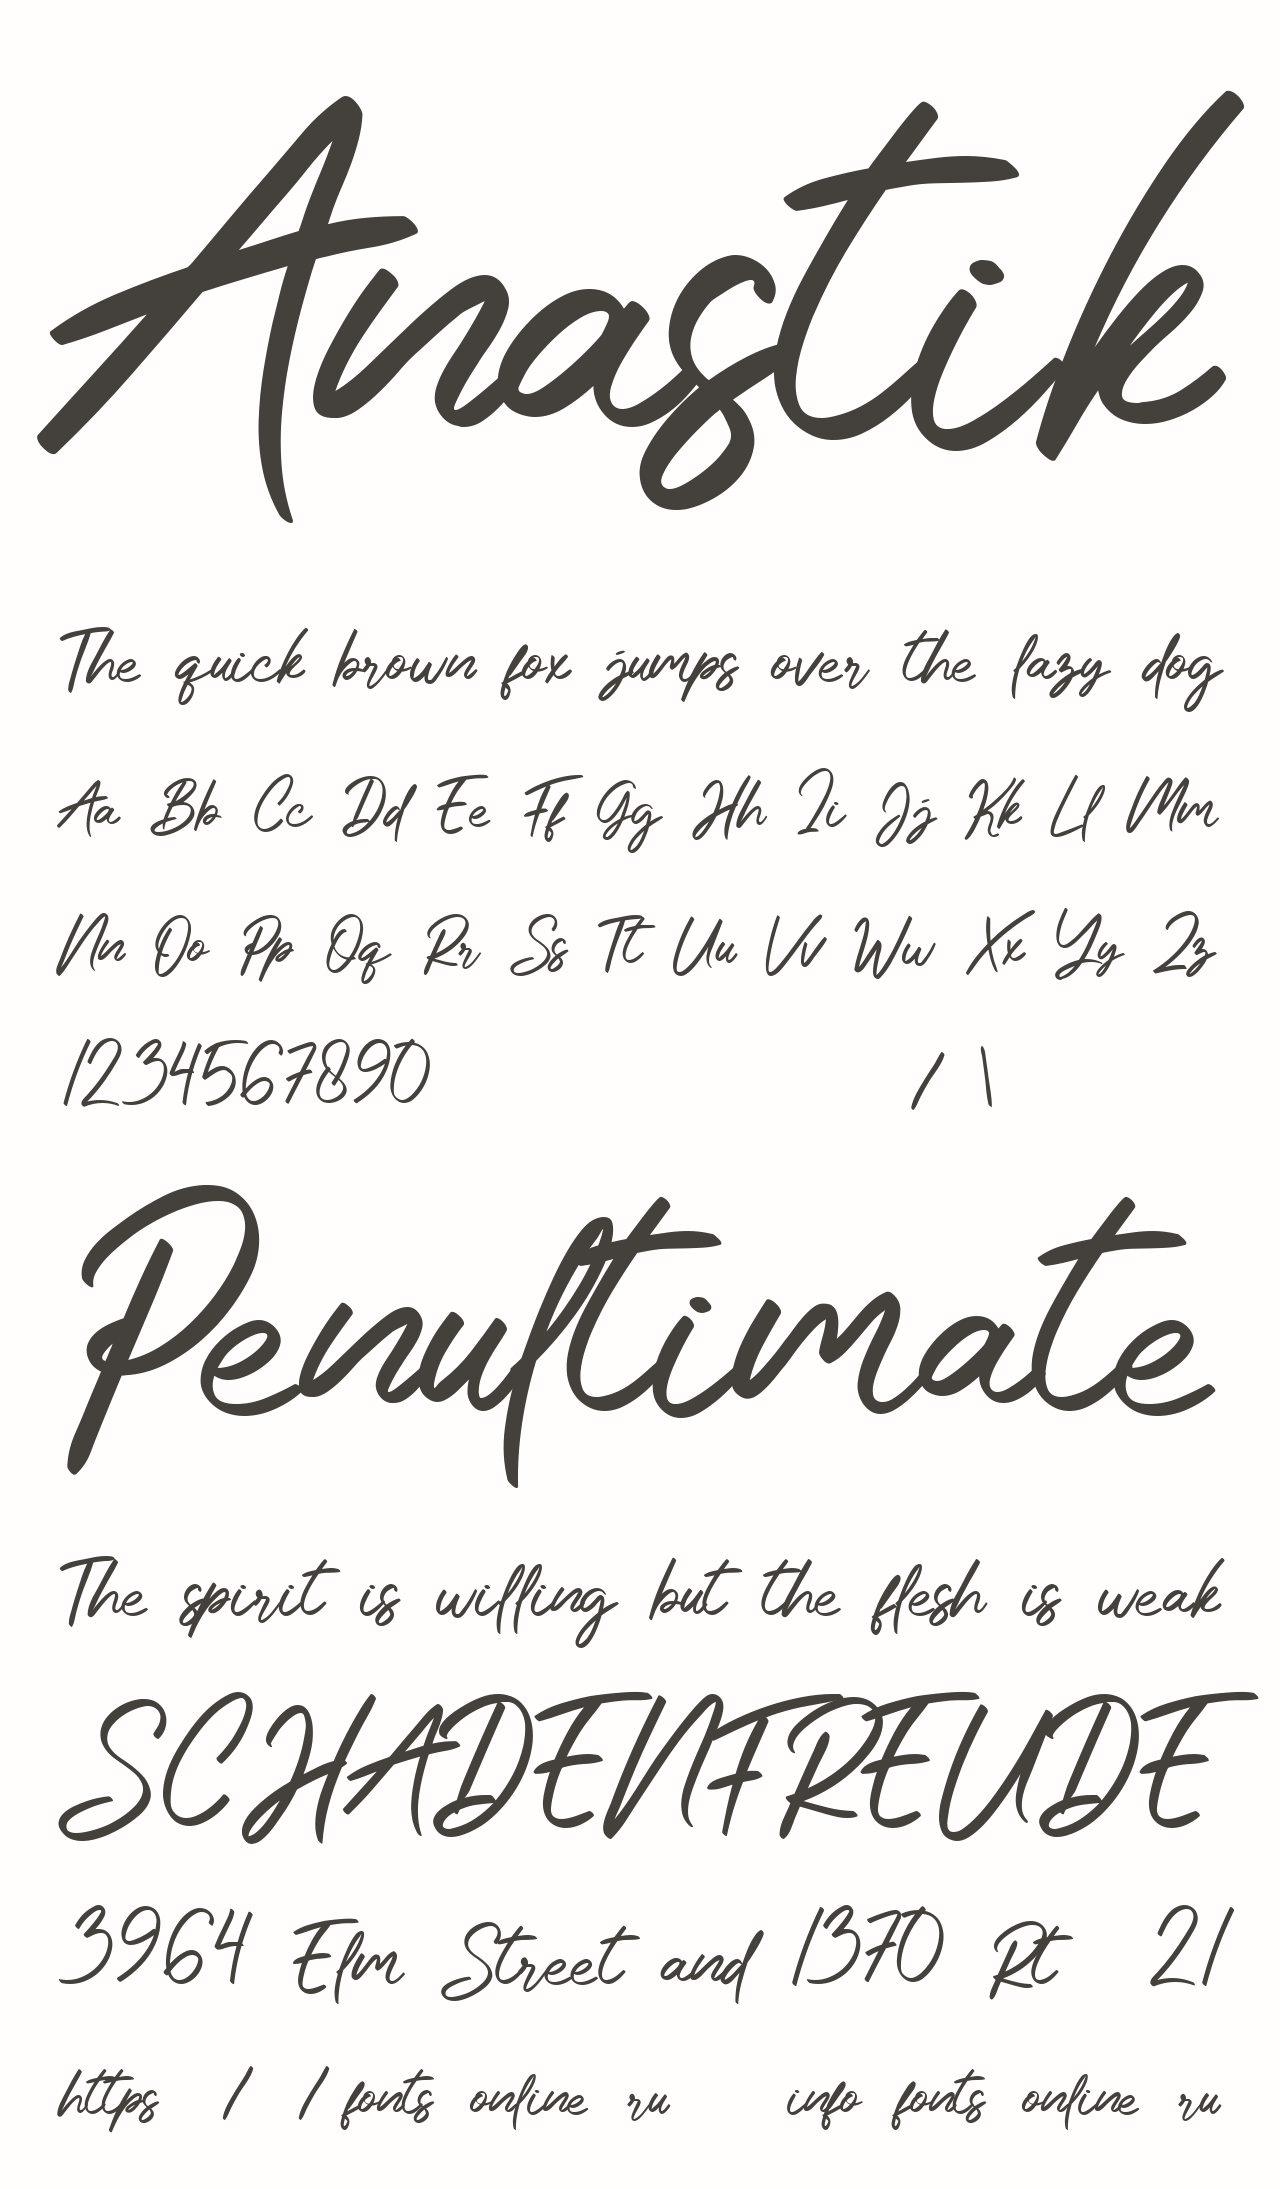 Anastik
The quick brown fox jumps over the lazy dog
Aa Bb Cc Dd Ee Ff Gg Hh Ii Jj Kk Ll Mm
Nn Oo Pp Qq Rr Ss Tt Uu Vv Ww Xx Yy Zz
1234567890 / \
Penultimate
The spirit is willing but the flesh is weak
SCHADENFREUDE
3964 Elm Street and 1370 Rt 21
https / / fonts online ru info fonts online ru